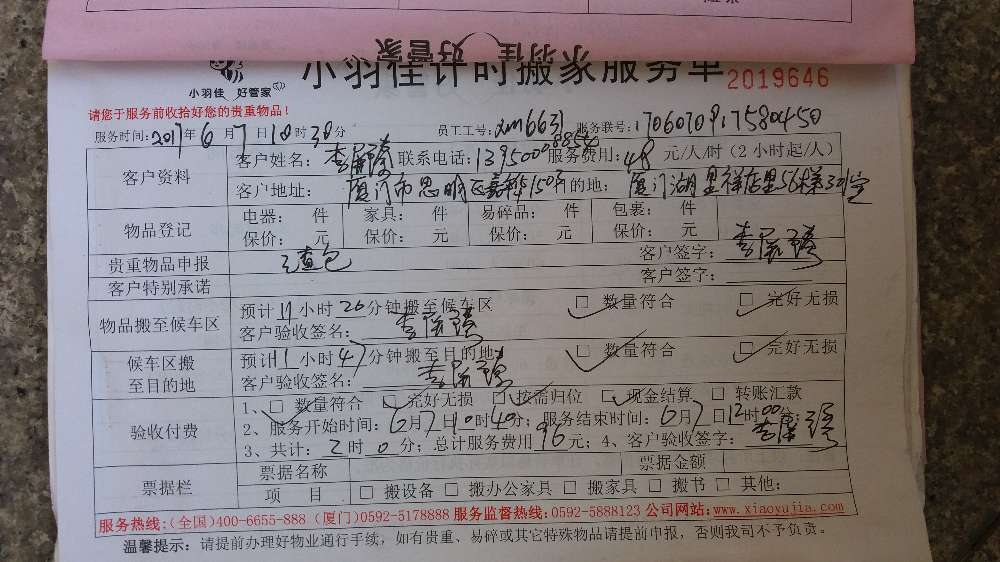 小羽佳 好管家
小羽佳 好管家
小羽佳计时搬家服务单 2019646
请您于服务前收拾好您的贵重物品!
服务时间:2017年6月7日10时30分 员工工号:XM6631 服务联号:
客户资料
客户姓名: 联系电话: 服务费用:48元/人/时(2小时起/人)
客户地址:厦门市思明区 目的地:厦门湖里祥店里
物品登记
电器: 件 家具: 件 易碎品: 件 包裹: 件
保价: 元 保价: 元 保价: 元 保价: 元
贵重物品申报 客户签字:
客户特别承诺 客户签字:
物品搬至候车区
预计 小时20分钟搬至候车区 □数量符合 □完好无损
客户验收签名:
候车区搬至目的地
预计1小时47分钟搬至目的地 □数量符合 □完好无损
客户验收签名:
验收付费
1、□数量符合 □完好无损 □按需归位 □现金结算 □转账汇款
2、服务开始时间:6月7日10时40分;服务结束时间:6月7日12时00分;
3、共计:2时0分;总计服务费用96元;4、客户验收签字:
票据栏
票据名称 票据金额
项 目 □搬设备 □搬办公家具 □搬家具 □搬书 □其他:
服务热线:(全国)400-6655-888 (厦门)0592-5178888 服务监督热线:0592-5888123 公司网站:www.xiaoyujia.com
温馨提示:请提前办理好物业通行手续,如有贵重、易碎或其它特殊物品请提前申报,否则我司不予负责。